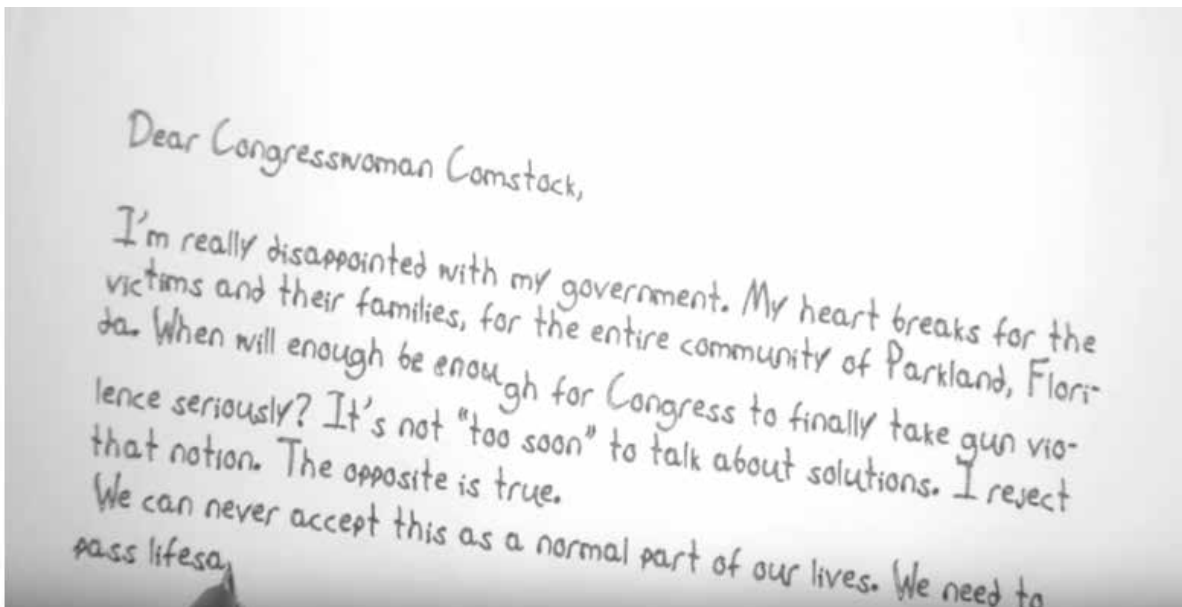 Dear Congresswoman Comstock,
I'm really disappointed with my government. My heart breaks for the
victims and their families, for the entire community of Parkland, Flori-
da. When will enough be enough for Congress to finally take gun vio-
lence seriously? It's not "too soon" to talk about solutions. I reject
that notion. The opposite is true.
We can never accept this as a normal part of our lives. We need to
pass lifesa